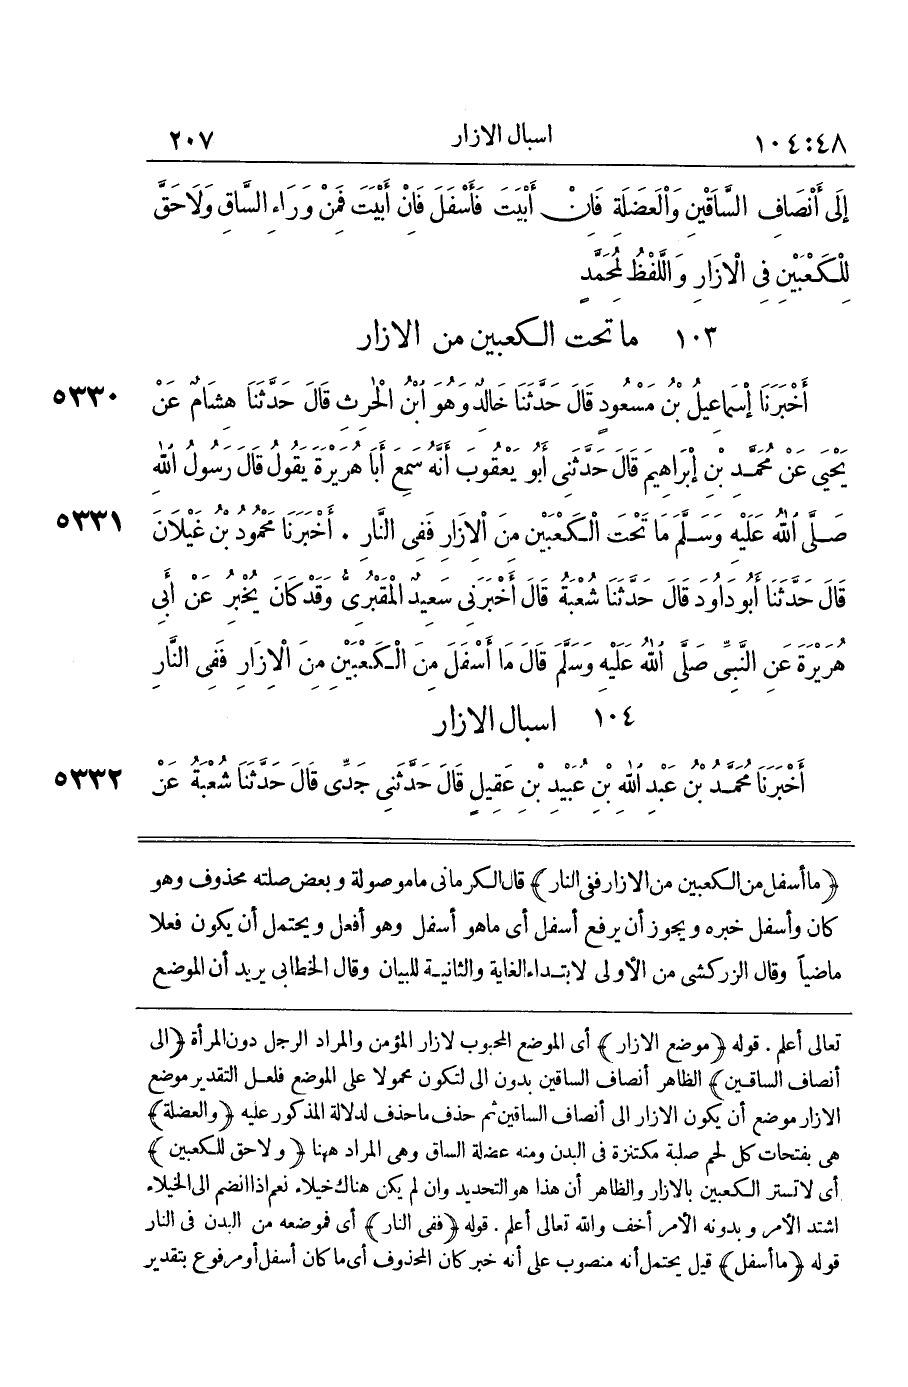 ١٠٤:٤٨ اسبال الازار ٢٠٧
إِلَى أَنْصَافِ السَّاقَيْنِ وَالْعَضَلَةِ فَإِنْ أَبَيْتَ فَأَسْفَلَ فَإِنْ أَبَيْتَ فَمِنْ وَرَاءِ السَّاقِ وَلَا حَقَّ
لِلْكَعْبَيْنِ فِى الْإِزَارِ وَاللَّفْظُ لِمُحَمَّدٍ
١٠٣ ما تحت الكعبين من الازار
أَخْبَرَنَا إِسْمَاعِيلُ بْنُ مَسْعُودٍ قَالَ حَدَّثَنَا خَالِدٌ وَهُوَ ابْنُ الْحٰرِثِ قَالَ حَدَّثَنَا هِشَامٌ عَنْ ٥٣٣٠
يَحْيَى عَنْ مُحَمَّدِ بْنِ إِبْرَاهِيمَ قَالَ حَدَّثَنِى أَبُو يَعْقُوبَ أَنَّهُ سَمِعَ أَبَا هُرَيْرَةَ يَقُولُ قَالَ رَسُولُ اللّٰهِ
صَلَّى اللّٰهُ عَلَيْهِ وَسَلَّمَ مَا تَحْتَ الْكَعْبَيْنِ مِنَ الْإِزَارِ فَفِى النَّارِ . أَخْبَرَنَا مَحْمُودُ بْنُ غَيْلَانَ ٥٣٣١
قَالَ حَدَّثَنَا أَبُو دَاوُدَ قَالَ حَدَّثَنَا شُعْبَةُ قَالَ أَخْبَرَنِى سَعِيدٌ الْمَقْبُرِىُّ وَقَدْ كَانَ يُخْبِرُ عَنْ أَبِى
هُرَيْرَةَ عَنِ النَّبِىِّ صَلَّى اللّٰهُ عَلَيْهِ وَسَلَّمَ قَالَ مَا أَسْفَلَ مِنَ الْكَعْبَيْنِ مِنَ الْإِزَارِ فَفِى النَّارِ
١٠٤ اسبال الازار
أَخْبَرَنَا مُحَمَّدُ بْنُ عَبْدِ اللّٰهِ بْنِ عُبَيْدِ بْنِ عَقِيلٍ قَالَ حَدَّثَنِى جَدِّى قَالَ حَدَّثَنَا شُعْبَةُ عَنْ ٥٣٣٢
﴿ما أسفل من الكعبين من الازار ففى النار﴾ قال الكرمانى ما موصولة وبعض صلته محذوف وهو
كان وأسفل خبره ويجوز أن يرفع أسفل أى ما هو أسفل وهو أفعل ويحتمل أن يكون فعلا
ماضياً وقال الزركشى من الأولى لابتداء الغاية والثانية للبيان وقال الخطابى يريد أن الموضع
تعالى أعلم . قوله ﴿موضع الازار﴾ أى الموضع المحبوب لازار المؤمن والمراد الرجل دون المرأة ﴿الى
أنصاف الساقين﴾ الظاهر أنصاف الساقين بدون الى لتكون محمولا على الموضع فلعل التقدير موضع
الازار موضع أن يكون الازار الى أنصاف الساقين ثم حذف ما حذف لدلالة المذكور عليه ﴿والعضلة﴾
هى بفتحات كل لحم صلبة مكتنزة فى البدن ومنه عضلة الساق وهى المراد ههنا ﴿ولا حق للكعبين﴾
أى لا تستر الكعبين بالازار والظاهر أن هذا هو التحديد وان لم يكن هناك خيلاء نعم اذا انضم الى الخيلاء
اشتد الأمر وبدونه الأمر أخف والله تعالى أعلم . قوله ﴿ففى النار﴾ أى فموضعه من البدن فى النار
قوله ﴿ما أسفل﴾ قيل يحتمل أنه منصوب على أنه خبر كان المحذوف أى ما كان أسفل أو مرفوع بتقدير